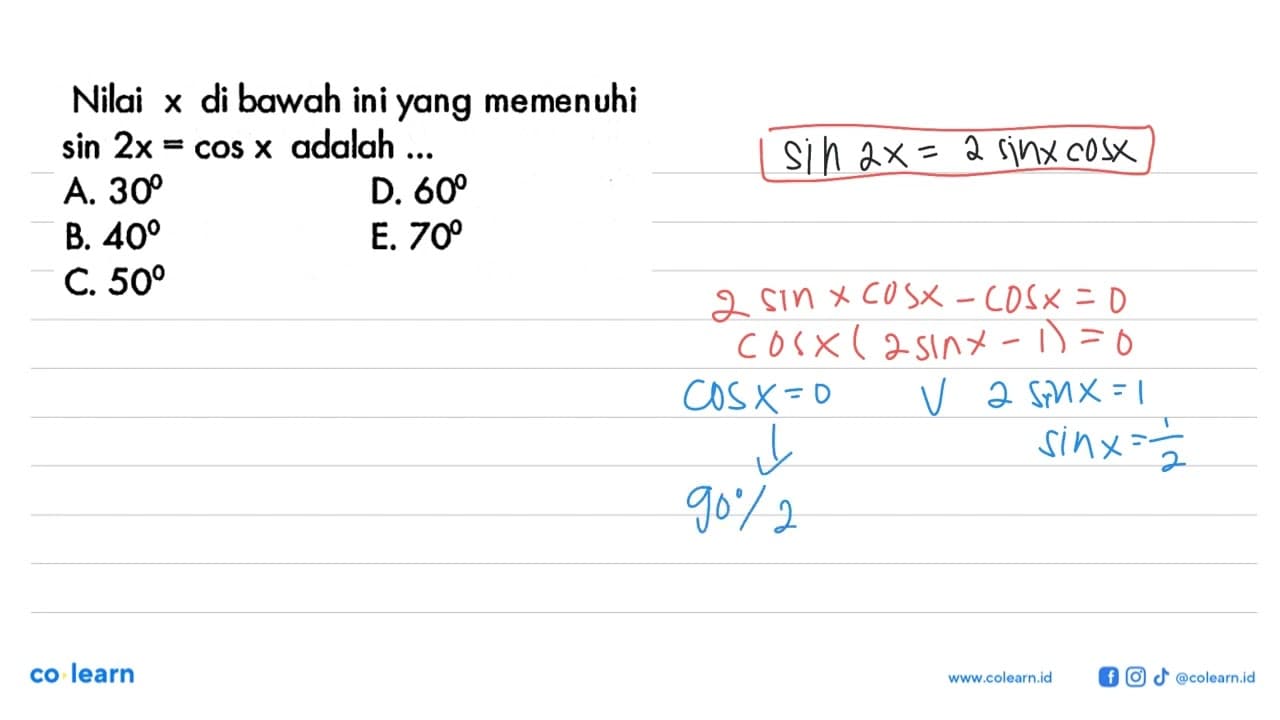 Nilai x di bawah ini yang memenuhi
sin 2x = cos x adalah ...
A. 30⁰ D. 60⁰
B. 40⁰ E. 70⁰
C. 50⁰
sin 2x = 2 sinx cosx
2 sin x cosx - cosx = 0
cosx ( 2 sinx - 1) = 0
cos x = 0 V 2 sinx = 1
↓ sin x = 1/2
90°/2
co learn
www.colearn.id @colearn.id